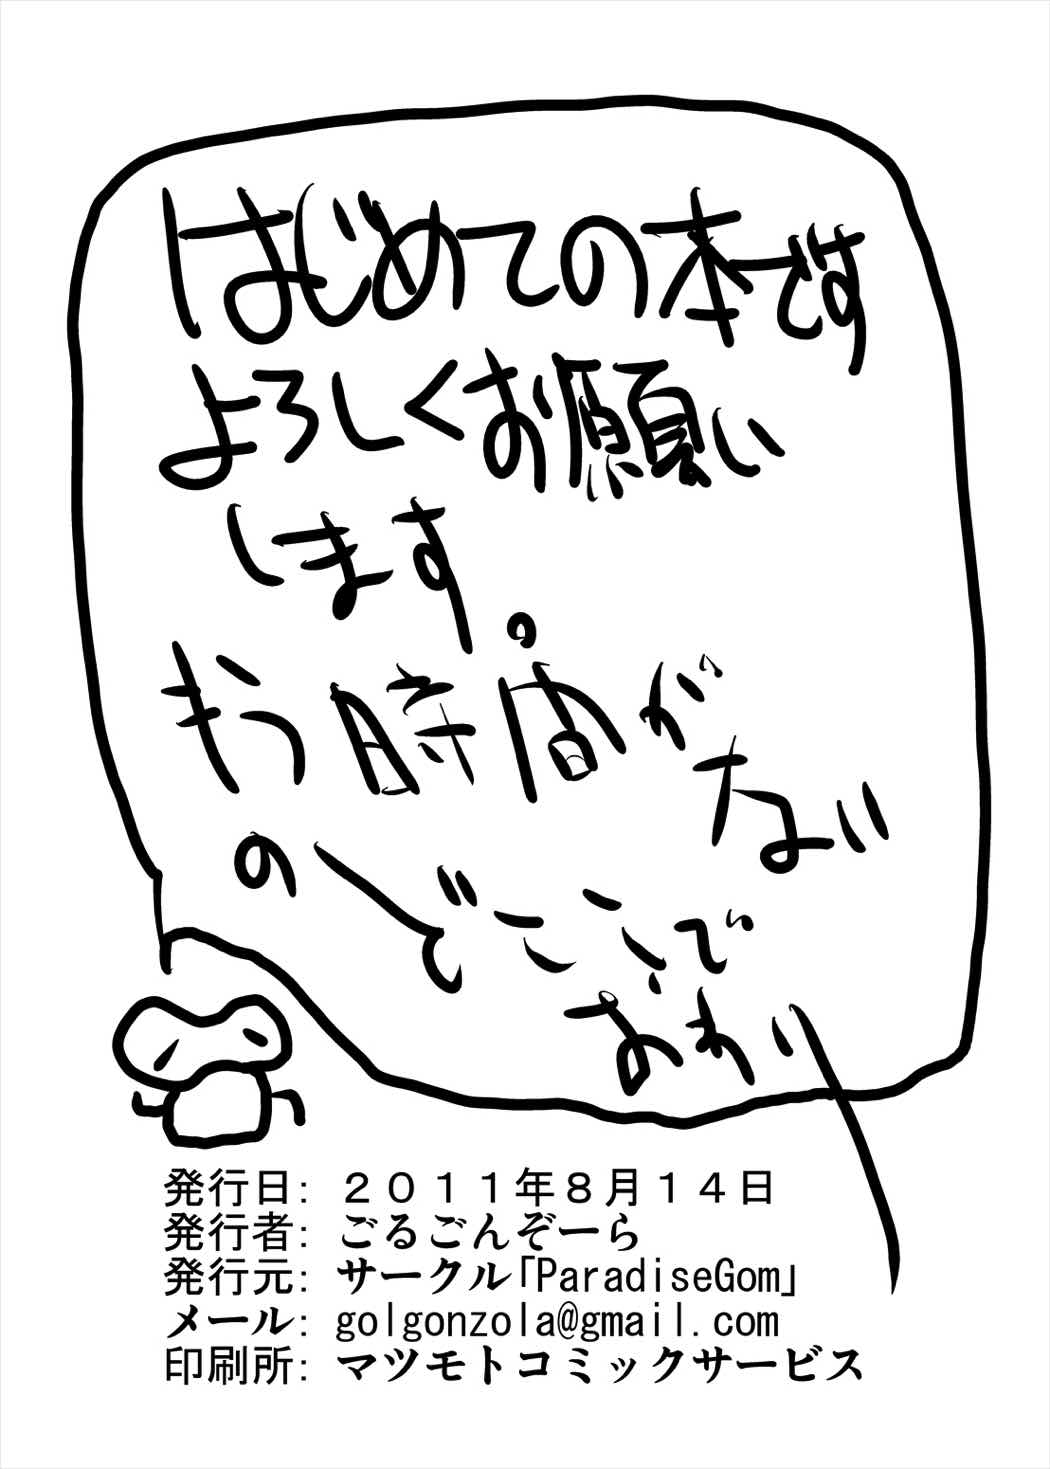 はじめての本です
よろしくお願い
します。
もう時間がない
のでここで
おわり
発行日: ２０１１年８月１４日
発行者: ごるごんぞーら
発行元: サークル「ParadiseGom」
メール: golgonzola@gmail.com
印刷所: マツモトコミックサービス